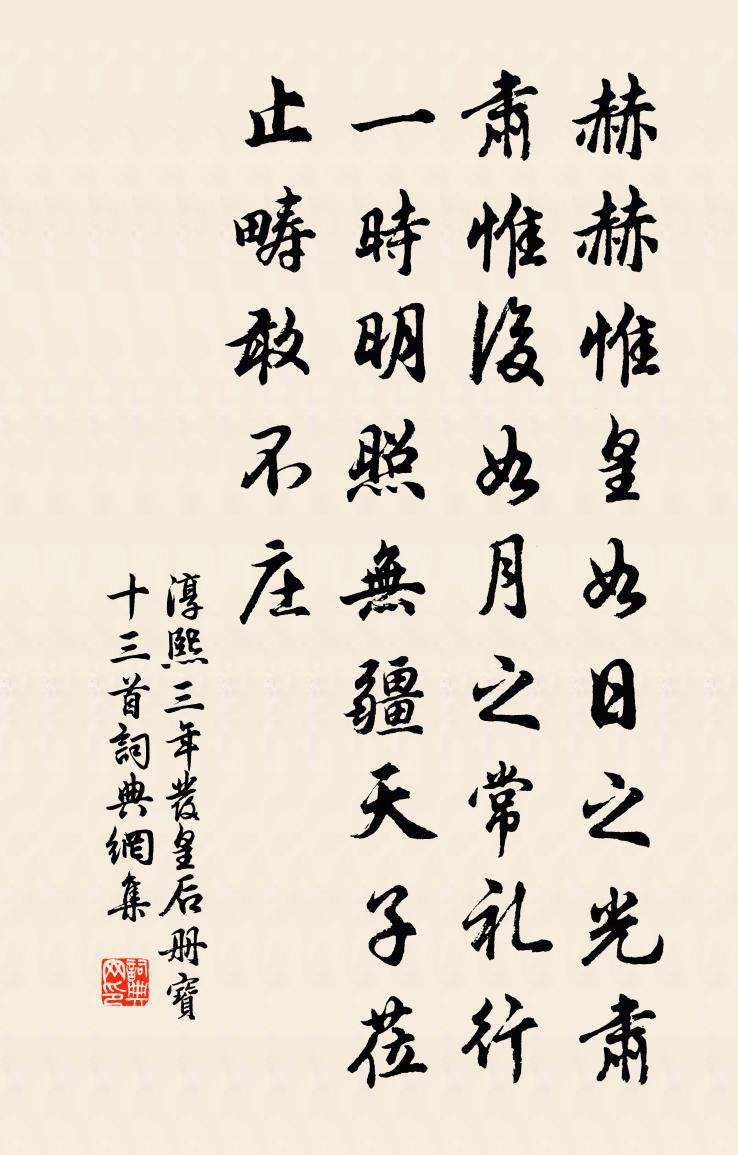 赫赫惟皇如日之光肅
肅惟後如月之常礼行
一時明照無疆天子莅
止疇敢不庄
淳熙三年發皇后册寶
十三首詞典網集
詞典网印